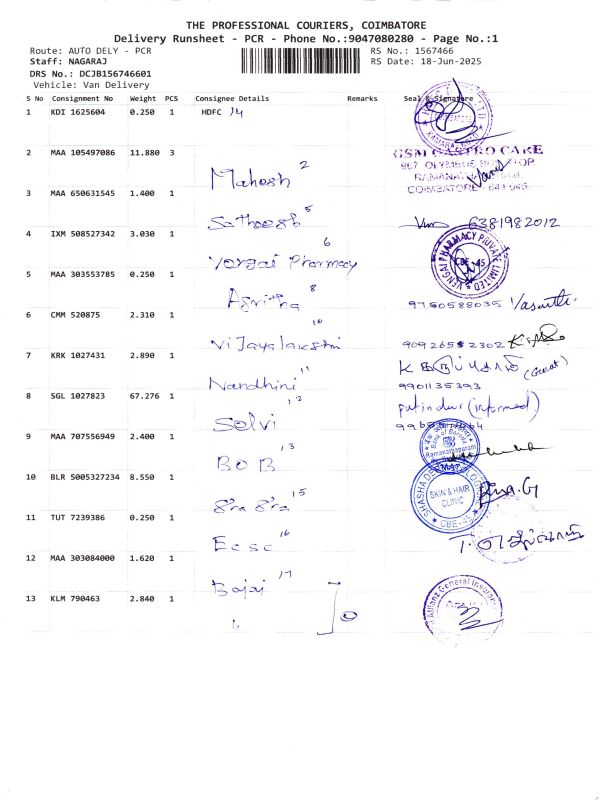 THE PROFESSIONAL COURIERS, COIMBATORE
Delivery Runsheet - PCR - Phone No.:9047080280 - Page No.:1
Route: AUTO DELY - PCR RS No.: 1567466
Staff: NAGARAJ RS Date: 18-Jun-2025
DRS No.: DCJB156746601
Vehicle: Van Delivery
S No Consignment No Weight PCS Consignee Details Remarks Seal & Signature
1 KDI 1625604 0.250 1 HDFC 14
2 MAA 105497086 11.880 3
GSM GASTRO CARE
Mahesh 2
COIMBATORE - 641 045
3 MAA 650631545 1.400 1
Satheesh 5 6381982012
4 IXM 508527342 3.030 1
6
Vengai Pharmacy
VENGAI PHARMACY PRIVATE LIMITED CBE-45
5 MAA 303553785 0.250 1
8
9750588035 Vasanthi
6 CMM 520875 2.310 1
10
Vijayalakshmi
7 KRK 1027431 2.890 1
Nandhini 11
9901135393
8 SGL 1027823 67.276 1
12
Selvi
9 MAA 707556949 2.400 1
Bank of Baroda
Ramanathapuram
BOB 13
10 BLR 5005327234 8.550 1
SKIN & HAIR
CLINIC
CBE-45
15
11 TUT 7239386 0.250 1
16
12 MAA 303084000 1.620 1
Bajaj 17
13 KLM 790463 2.840 1
Allianz General Insurance